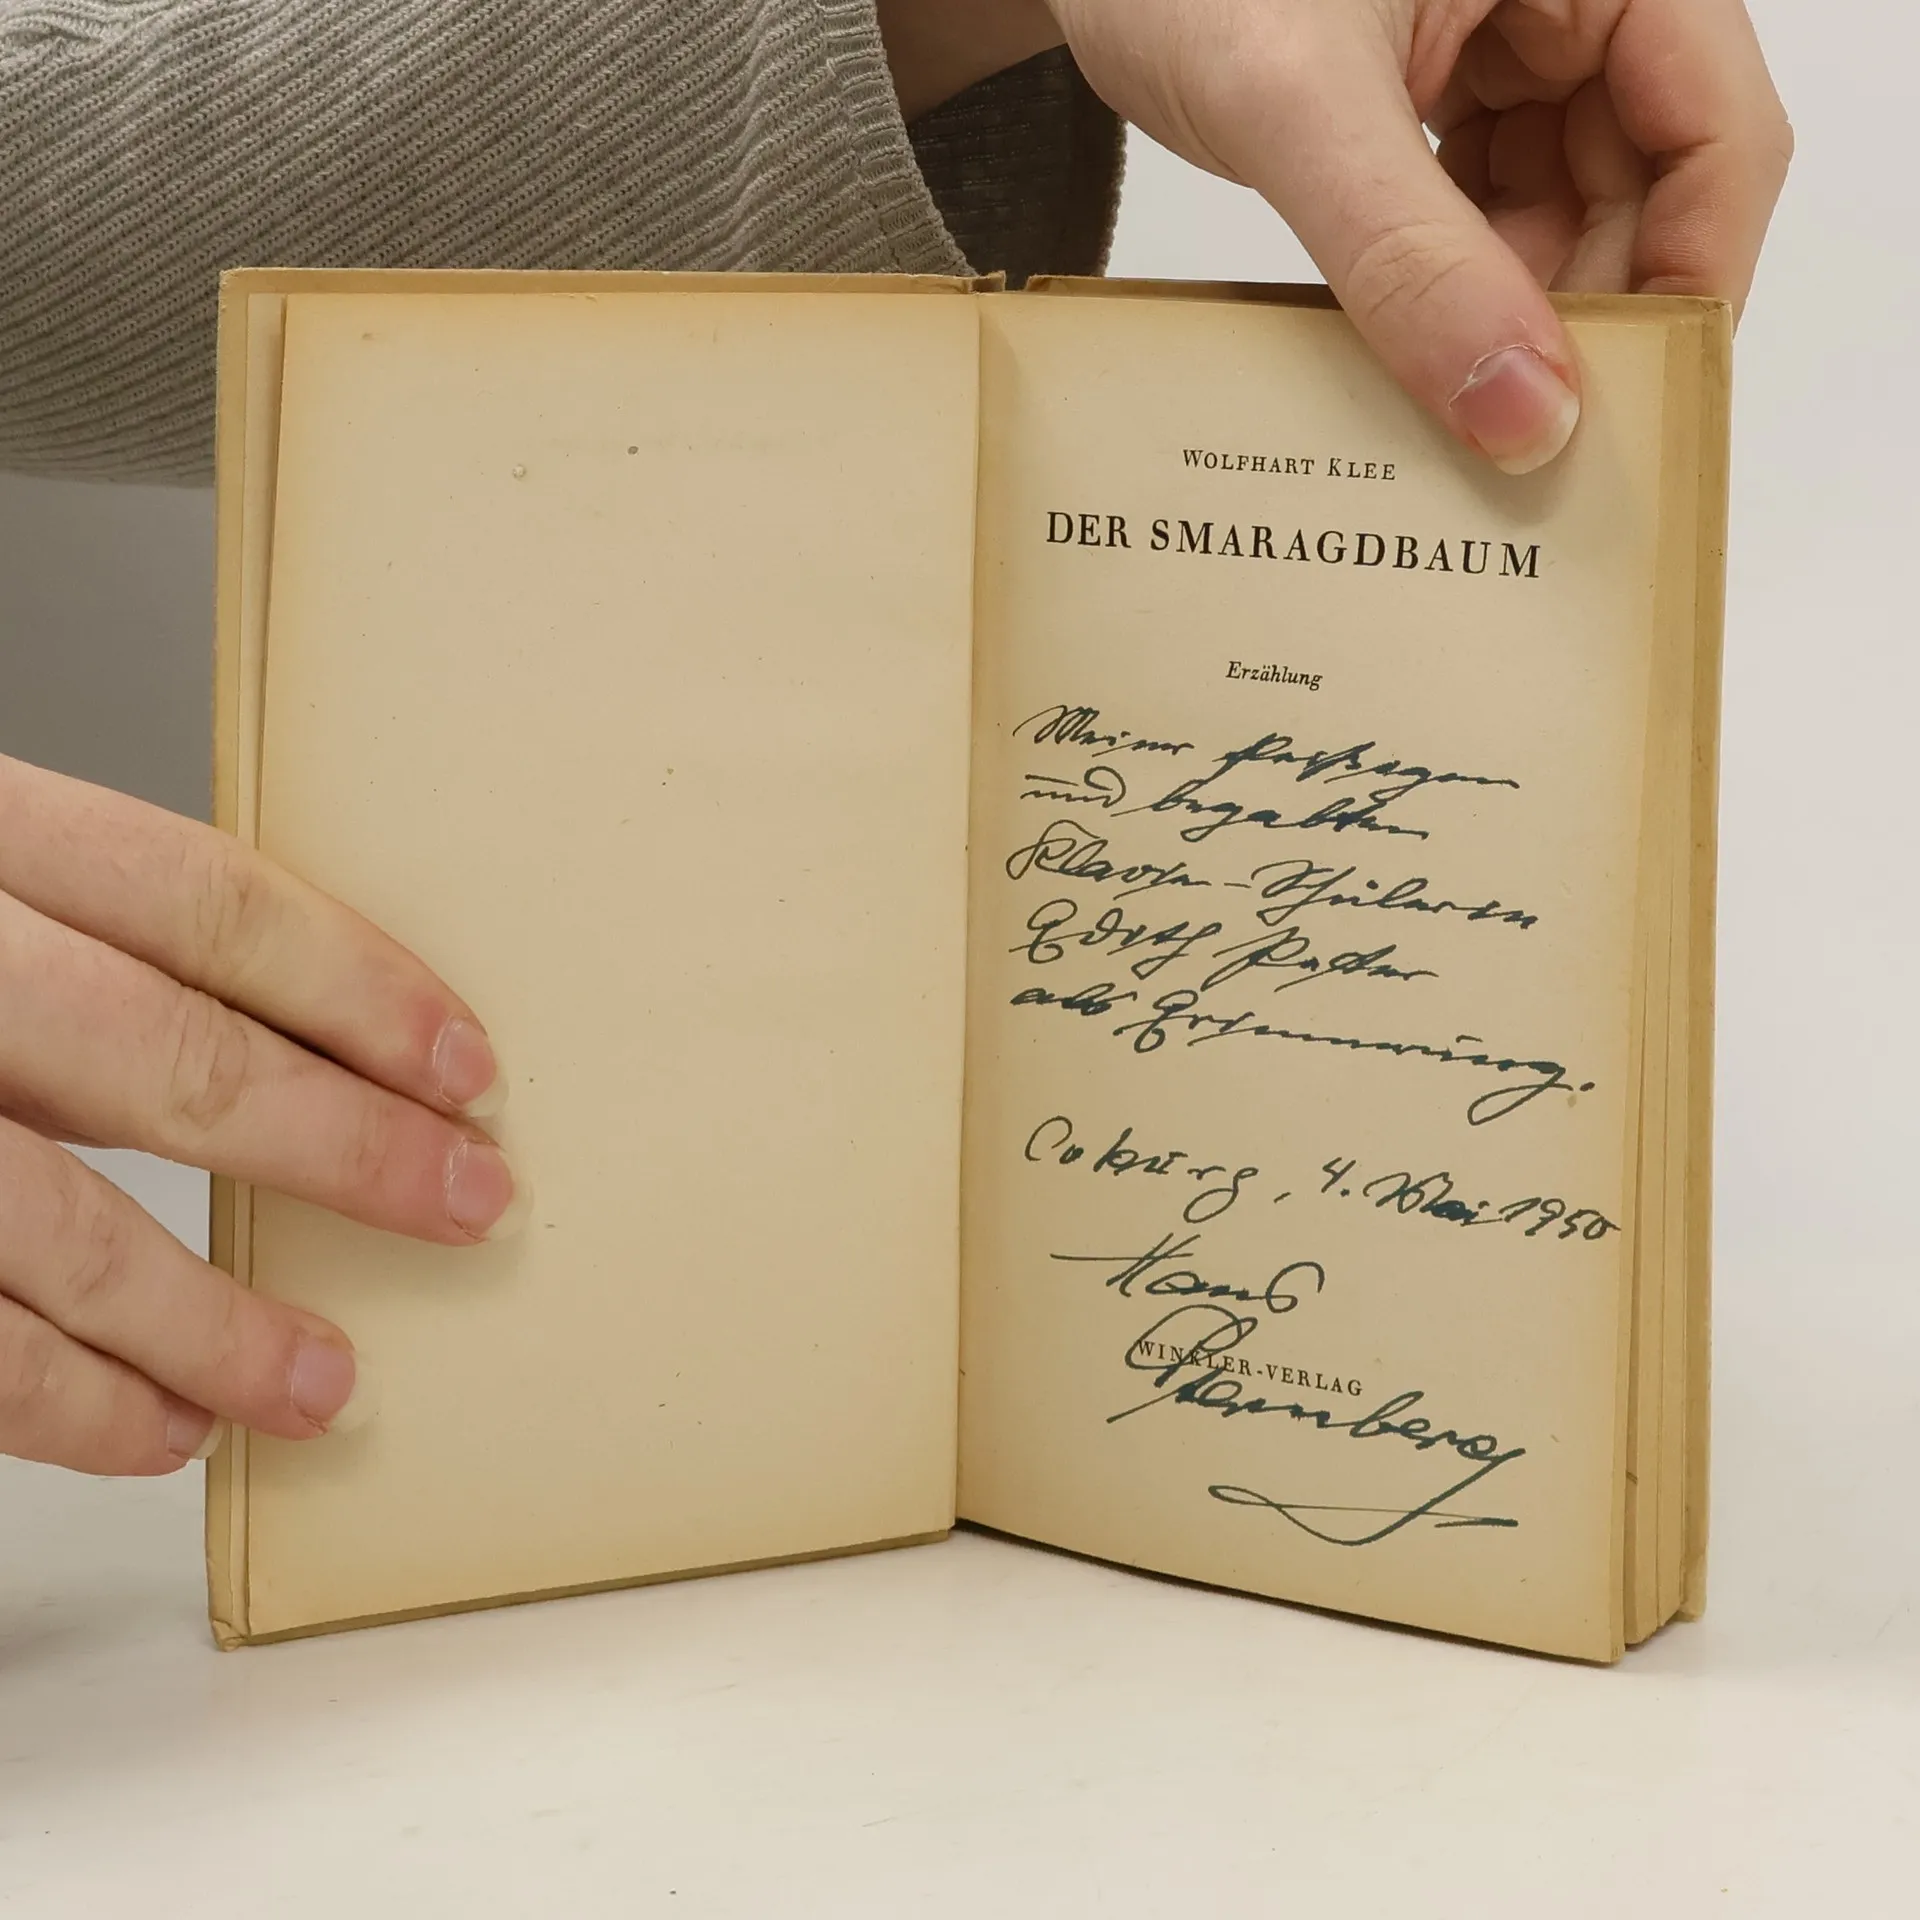 WOLFHART KLEE
DER SMARAGDBAUM
Erzählung
Meiner fleißigen
und begabten
Klavier-Schülerin
Edith
als Erinnerung.
Coburg, 4. Mai 1950
Hans
WINKLER-VERLAG